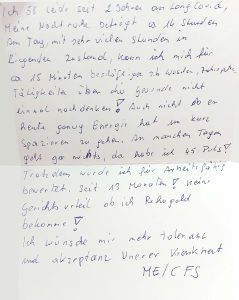 Ich 58 leide seit 2 Jahren an LongCovid,
Meine Nachtruhe beträgt ca 14 Stunden
Am Tag, mit sehr vielen Stunden in
liegenden Zustand, kann ich mich für
ca 15 Minuten beschäftigen zb Wasche,
Tätigkeiten über die gesunde nicht
einmal nachdenken! Auch nicht ob er
heute genug Energie hat um kurz
Spazieren zu gehen. An manchen Tagen
geht gar nichts, da habe ich 45 Puls!
Trotzdem wurde ich für Arbeitsfähig
bewertet. Seit 13 Monaten! Kein
Gerichtsurteil ob ich Rehageld
bekomme!
Ich wünsche mir mehr toleranz
und akzeptanz Unerer Krankheit
ME/CFS